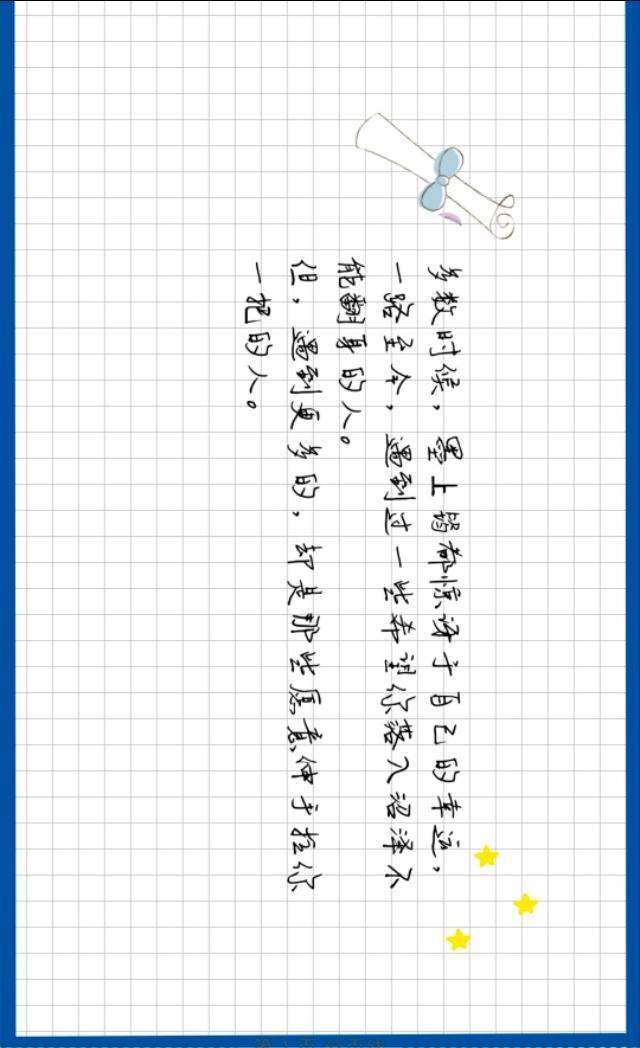 多数时候，墨上筠都惊讶于自己的幸运，
一路至今，遇到过一些希望你落入沼泽不
能翻身的人。
但，遇到更多的，却是那些愿意伸手拉你
一把的人。